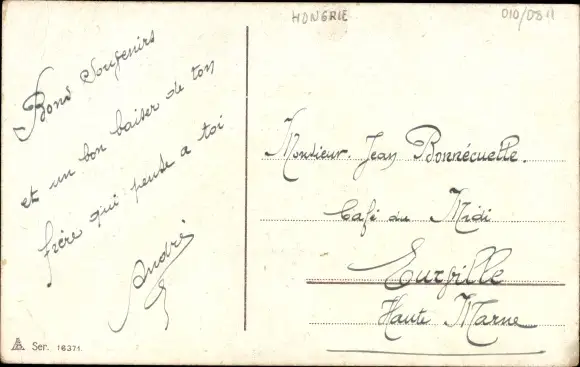 HONGRIE
010/0811
Bons Souvenirs
et un bon baiser de ton
frère qui pense a toi
André
Monsieur. Jean Bonnécuelle.
Café du Midi
Eurville
Haute Marne
Ser. 16371.